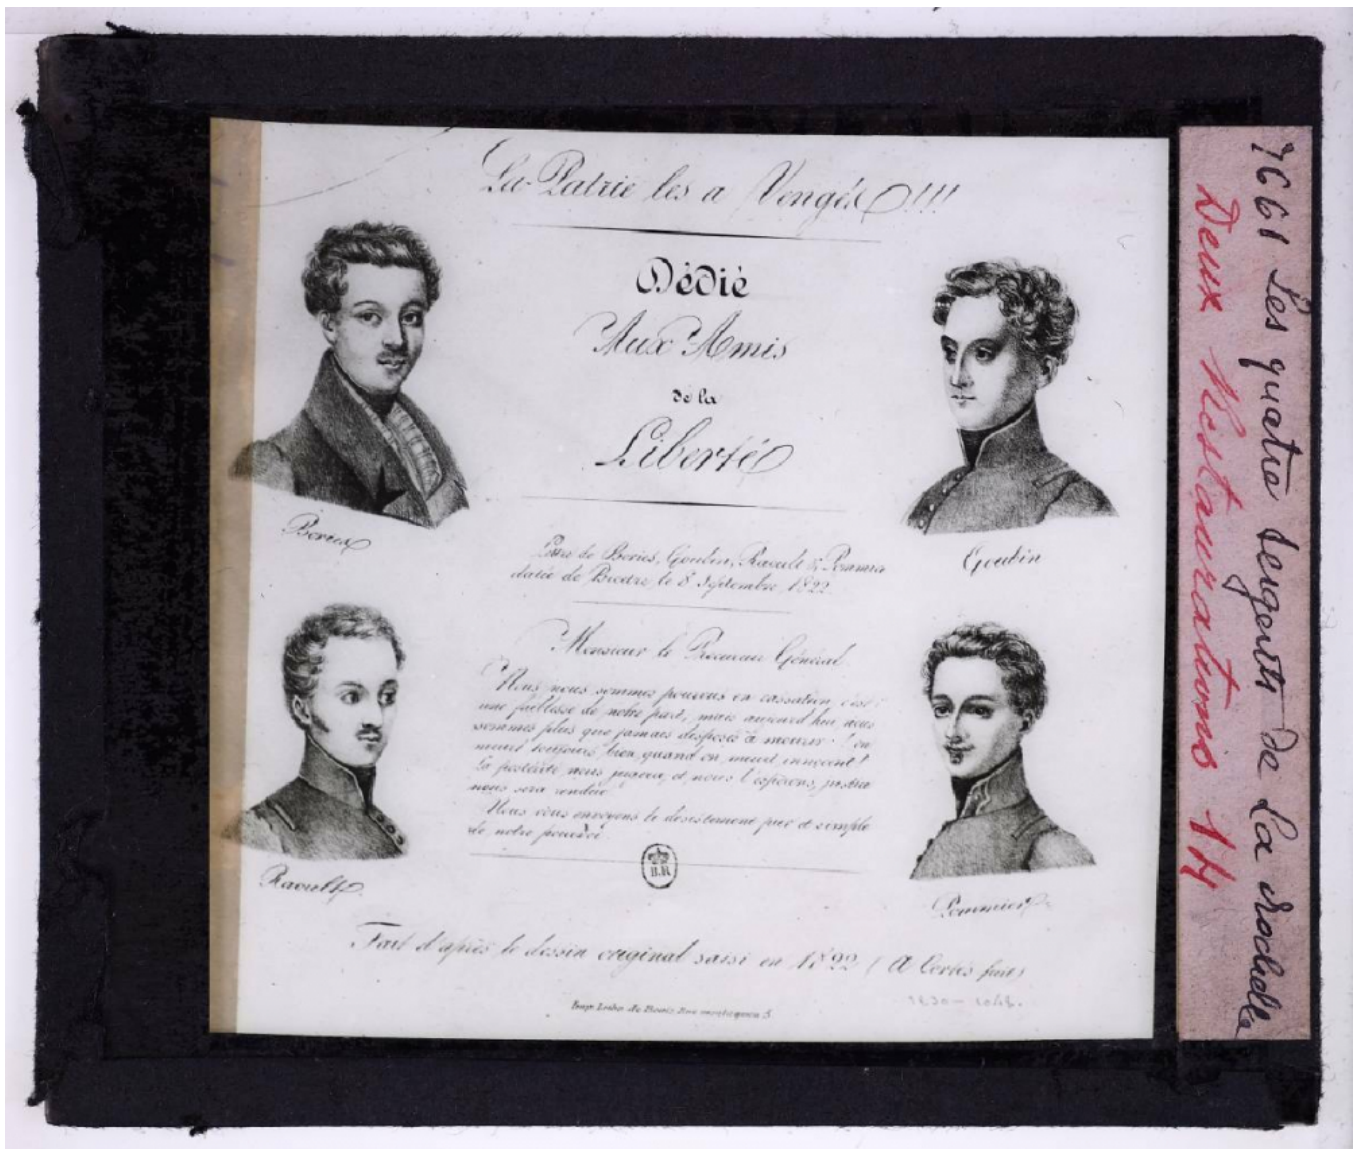 La Patrie les a Vengés!!!
Dédié
Aux Amis
de la
Liberté
Bories
Goubin
Lettre de Bories, Goubin, Raoulx & Pommier
datée de Bicêtre, le 8 Septembre, 1822.
Monsieur le Procureur Général.
Nous nous sommes pourvus en cassation, c'est
une faiblesse de notre part, mais aujourd'hui nous
sommes plus que jamais disposés à mourir! on
meurt toujours bien quand on meurt innocent!
la postérité nous jugera, et nous l'espérons, justice
nous sera rendue.
Nous vous envoyons le désistement pur et simple
de notre pourvoi.
Raoulx
Pommier
B.R
Fait d'après le dessin original saisi en 1822 (A
1830
Rue 5
7661 Les quatre sergents de La Rochelle
Deux Restaurations 14